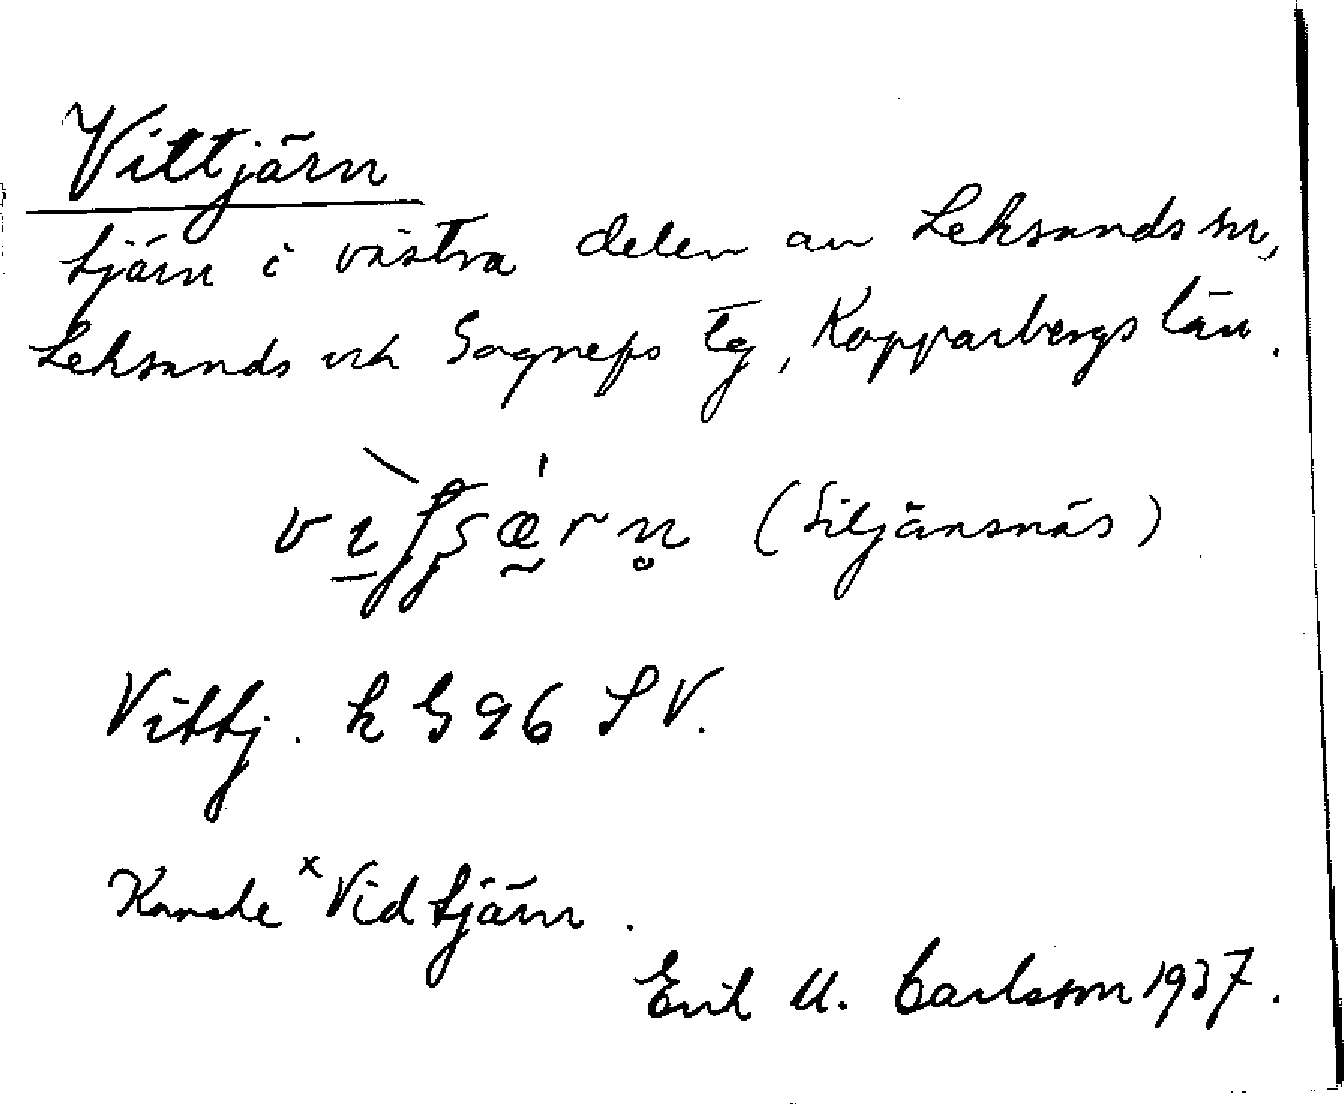 Vittjärn
tjärn i västra delen av Leksands sn,
Leksands och Gagnefs tg, Kopparbergs län.
(Siljansnäs)
Vittj. k G 96 SV.
Kanske ˣVidtjärn.
Erik U. Carlsson 1937.